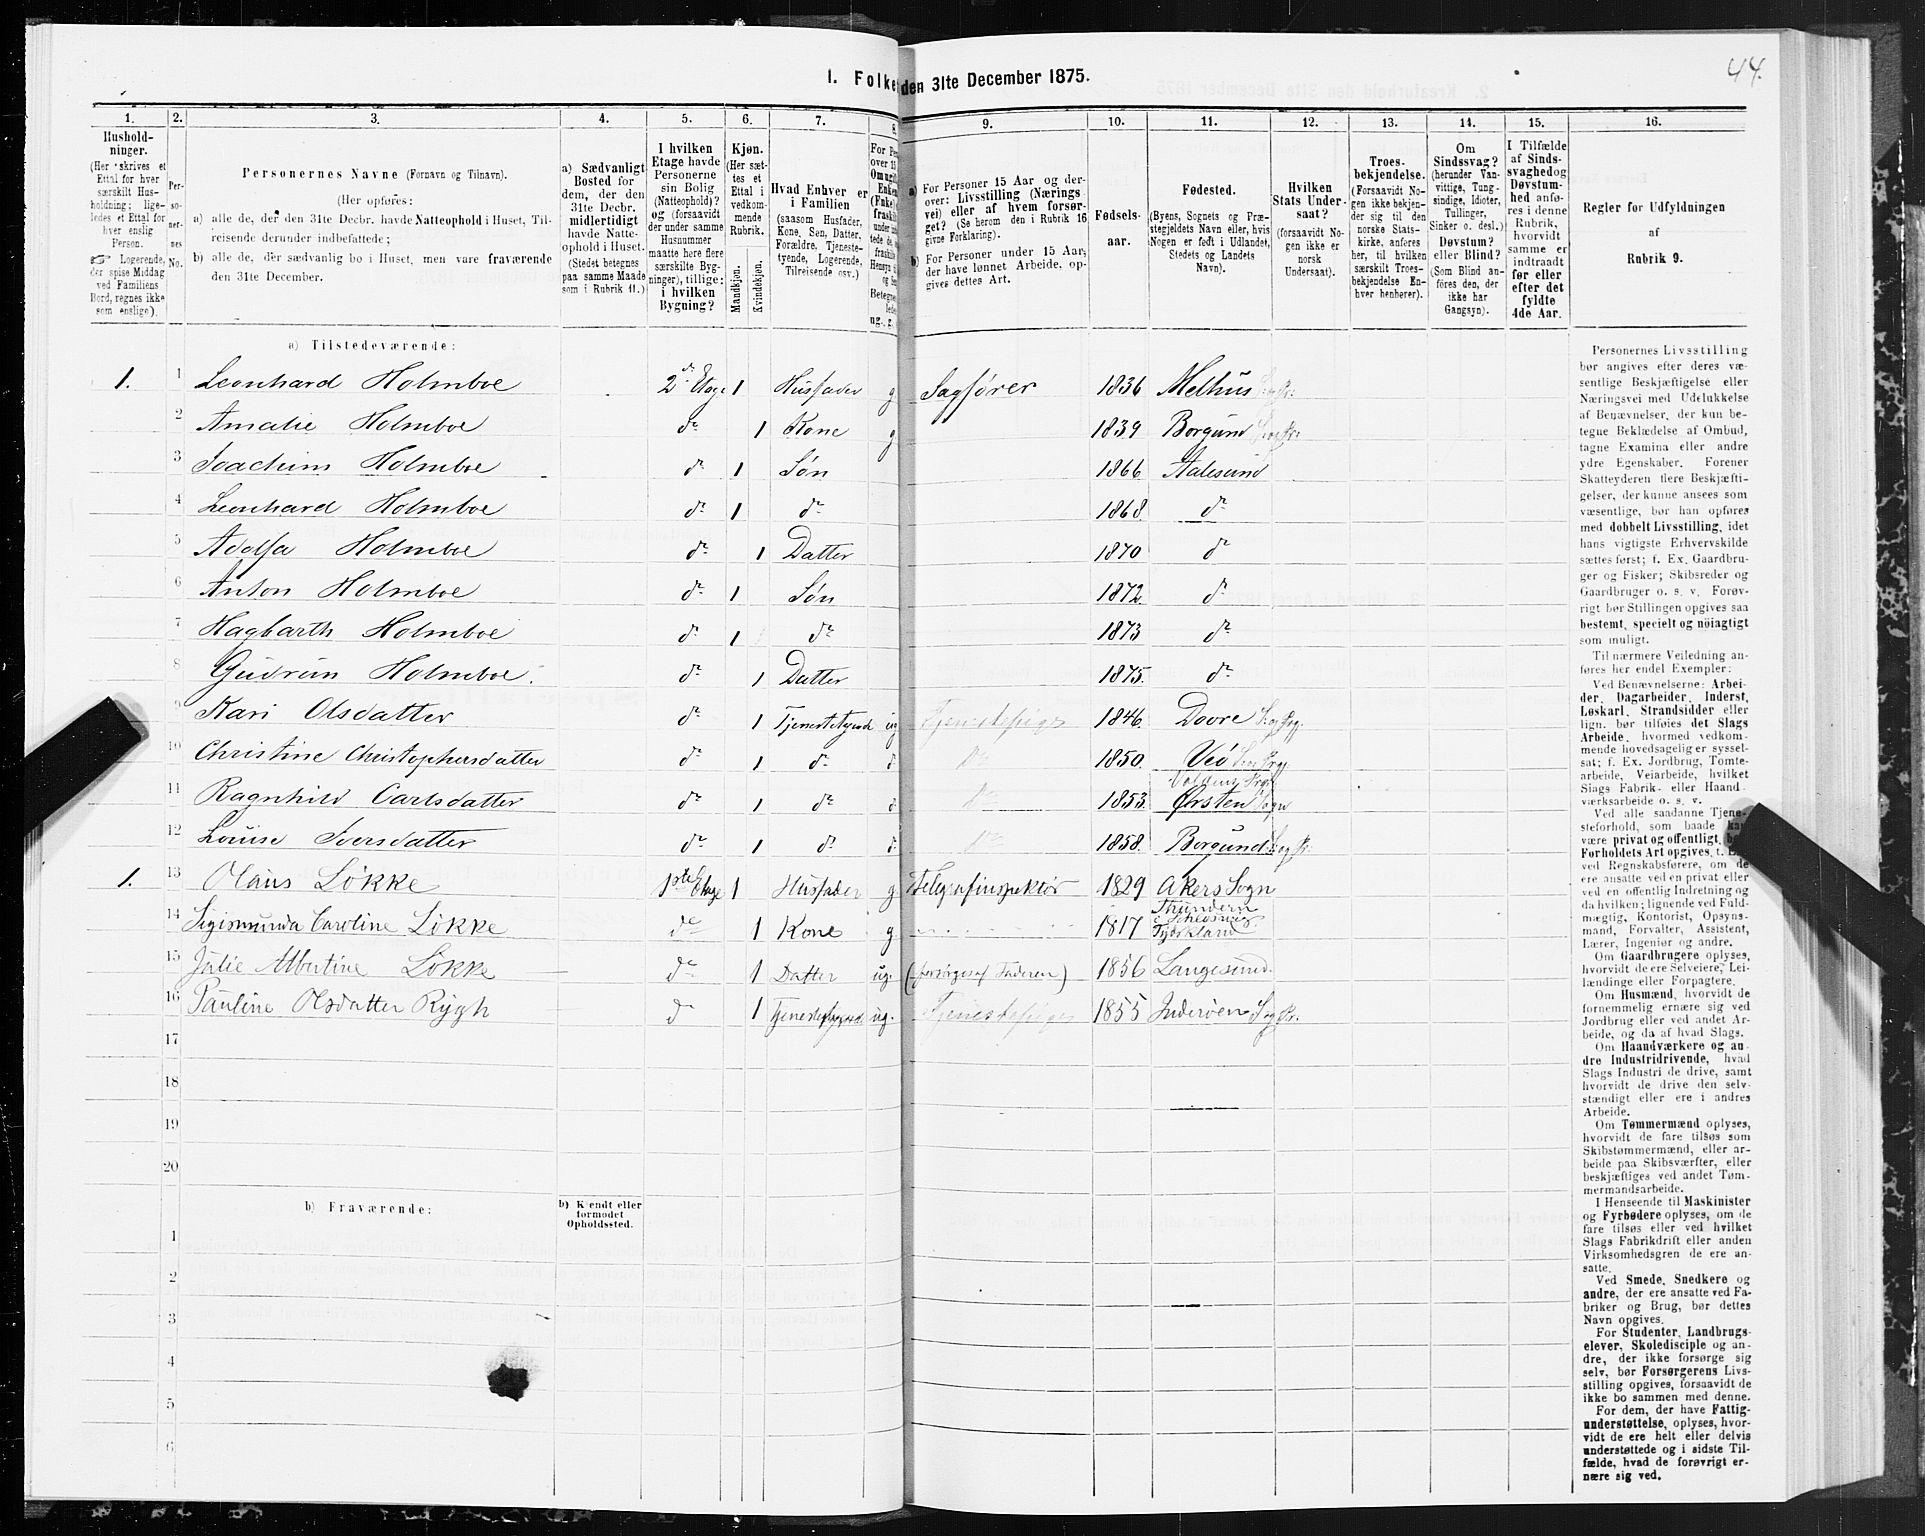 44.
1. Folke den 31te December 1875.
1.
2.
3.
4.
5.
6.
7.
8.
9.
10.
11.
12.
13.
14.
15.
16.
Hushold-
ninger.
(Her skrives et
Ettal for hver
særskilt Hus-
holdning; lige-
ledes et Ettal for
hver enslig
Person.
Logerende,
der spise Middag
ved Familiens
Bord, regnes ikke
som enslige).
Per-
so-
ner-
nes
No.
Personernes Navne (Fornavn og Tilnavn).
(Her opføres:
a) alle de, der den 31te Decbr. havde Natteophold i Huset, Til-
reisende derunder indbefattede;
b) alle de, der sædvanlig bo i Huset, men vare fraværende
den 31te December.
a) Sædvanligt
Bosted for
dem, der den
31te Decbr.
midlertidigt
havde Natte-
ophold i Huset.
(Stedet betegnes
paa samme Maade
som i Rubrik 11.)
I hvilken
Etage havde
Personerne
sin Bolig
(Natteophold)?
og (forsaavidt
der under samme
Husnummer
maatte høre flere
særskilte Byg-
ninger), tillige:
i hvilken
Bygning?
Kjøn.
(Her sæt-
tes et
Ettal i
vedkom-
mende
Rubrik.
Mandkjøn.
Kvindekjøn.
Hvad Enhver er
i Familien
(saasom Husfader,
Kone, Søn, Datter,
Forældre, Tjeneste-
tyende, Logerende,
Tilreisende osv.)
For Pe
over 15
Omugif
Enken
(Enke)
fraskil
under un
tede de,
fraskil
Hensyn
og Se
Betegne
fede
ug., g.,
a) For Personer 15 Aar og der-
over: Livsstilling (Nærings-
vei) eller af hvem forsør-
get? (Se herom den i Rubrik 16
givne Forklaring).
b) For Personer under 15 Aar,
der have lønnet Arbeide, op-
gives dettes Art.
Fødsels-
aar.
Fødested.
(Byens, Sognets og Præ-
stegjeldets Navn eller, hvis
Nogen er født i Udlandet,
Stedets og Landets
Navn).
Hvilken
Stats Under-
saat?
(forsaavidt No-
gen ikke er
norsk
Undersaat).
Troes-
bekjendelse.
(Forsaavidt No-
gen ikke bekjen-
der sig til den
norske Stats-
kirke, anføres
her, til hvilken
særskilt Troes-
bekjendelse En-
hver henhører).
Om
Sindssvag?
(herunder Van-
vittige, Tung-
sindige, Idioter,
Tullinger,
Sinker o. desl.)
Døvstum?
eller Blind?
(Som Blind an-
føres den, der
ikke har
Gangsyn).
I Tilfælde
af Sinds-
svaghed og
Døvstum-
hed anfø-
res i denne
Rubrik,
hvorvidt
samme er
indtraadt
før eller
efter det
fyldte
4de Aar.
Regler for Udfyldningen
af
Rubrik 9.
a) Tilstedeværende:
1. 1 Leonhard Holmboe 2den Etage 1 Husfader g Sagfører 1836 Melhus S. og Pr.
2 Amalie Holmboe do 1 Kone g 1839 Borgund S. og Pr.
3 Joachim Holmboe do 1 Søn 1866 Aalesund
4 Leonhard Holmboe do 1 do 1868 do
5 Adolfa Holmboe do 1 Datter 1870 do
6 Anton Holmboe do 1 Søn 1872 do
7 Hagbarth Holmboe do 1 do 1873 do
8 Gudrun Holmboe. do 1 Datter 1875. do
9 Kari Olsdatter do 1 Tjenestetyende ug Tjenestepige 1846 Dovre S. og Prg.
10 Christine Christophersdatter do 1 do do do 1850. Veø S. og Prg.
Voldens Prg.
11 Ragnhild Carlsdatter do 1 do do do 1853. Ørsten Sogn
12 Louise Iversdatter do 1 do do do 1858. Borgund S. og Pr.
1. 13 Olaus Løkke 1ste Etage 1 Husfader g. Telegrafinspektør 1829 Akers Sogn
14 Sigismunda Caroline Løkke do 1 Kone g. 1817
i Schleswig
Tydskland
15 Julie Albertine Løkke do 1 Datter ug. (forsørges af Faderen) 1856 Langesund.
16 Pauline Olsdatter Rygh do 1 Tjenestetyende ug. Tjenestepige 1855 Inderøen S. og Pr.
17
18
19
20
b) Fraværende:
b) Kjendt eller
formodet
Opholdssted.
1
2
3
4
5
6
Personernes Livsstilling
bør angives efter deres væ-
sentlige Beskjæftigelse eller
Næringsvei med Udelukkelse
af Benævnelser, der kun be-
tegne Beklædelse af Ombud,
tagne Examina eller andre
ydre Egenskaber. Forener
Skatteyderen flere Beskjæfti-
gelser, der kunne ansees som
væsentlige, bør han opføres
med dobbelt Livsstilling, idet
hans vigtigste Erhvervskilde
sættes først; f. Ex. Gaardbru-
ger og Fisker; Skibsreder og
Gaardbruger o. s. v. Forøv-
rigt bør Stillingen opgives saa
bestemt, specielt og nøiagtigt
som muligt.
Til nærmere Veiledning an-
føres her endel Exempler:
Ved Benævnelserne: Arbei-
der, Dagarbeider, Inderst,
Løskarl, Strandsidder eller
lign. bør tilføies det Slags
Arbeide, hvormed vedkom-
mende hovedsagelig er syssel-
sat; f. Ex. Jordbrug, Tomte-
arbeide, Veiarbeide, hvilket
Slags Fabrik- eller Haand-
værksarbeide o. s. v.
Ved alle saadanne Tjene-
steforhold, som baade kan
være privat og offentlig, bør
Forholdets Art opgives, f. Ex.
ved Regnskabsførere, om de
ere ansatte ved en privat eller
ved en offentlig Indretning og
da hvilken; lignende ved Fuld-
mægtig, Kontorist, Opsyns-
mand, Forvalter, Assistent,
Lærer, Ingeniør og andre.
Om Gaardbrugere oplyses,
hvorvidt de ere Selveiere, Lei-
lændinge eller Forpagtere.
Om Husmænd, hvorvidt de
fornemmelig ernære sig ved
Jordbrug eller ved andet Ar-
beide, og da af hvad Slags.
Om Haandværkere og an-
dre Industridrivende, hvad
Slags Industri de drive, samt
hvorvidt de drive den selv-
stændigt eller ere i andres
Arbeide.
Om Tømmermænd oplyses,
hvorvidt de fare tilsøs som
Skibstømmermænd, eller ar-
beide paa Skibsværfter, eller
beskjæftiges ved andet Tøm-
mermandsarbeide.
I Henseende til Maskinister
og Fyrbødere oplyses, om de
fare tilsøs eller ved hvilket
Slags Fabrikdrift eller anden
Virksomhedsgren de ere an-
satte.
Ved Smede, Snedkere og
andre, der ere ansatte ved Fa-
briker og Brug, bør dettes
Navn opgives.
For Studenter, Landbrugs-
elever, Skoledisciple og an-
dre, der ikke forsørge sig
selv, bør Forsørgerens Livs-
stilling opgives, forsaavidt de
ikke bo sammen med denne.
For dem, der have Fattig-
understøttelse, oplyses, hvor-
vidt de ere helt eller delvis
understøttede og i sidste Til-
fælde, hvad de forøvrigt er-
nære sig ved.